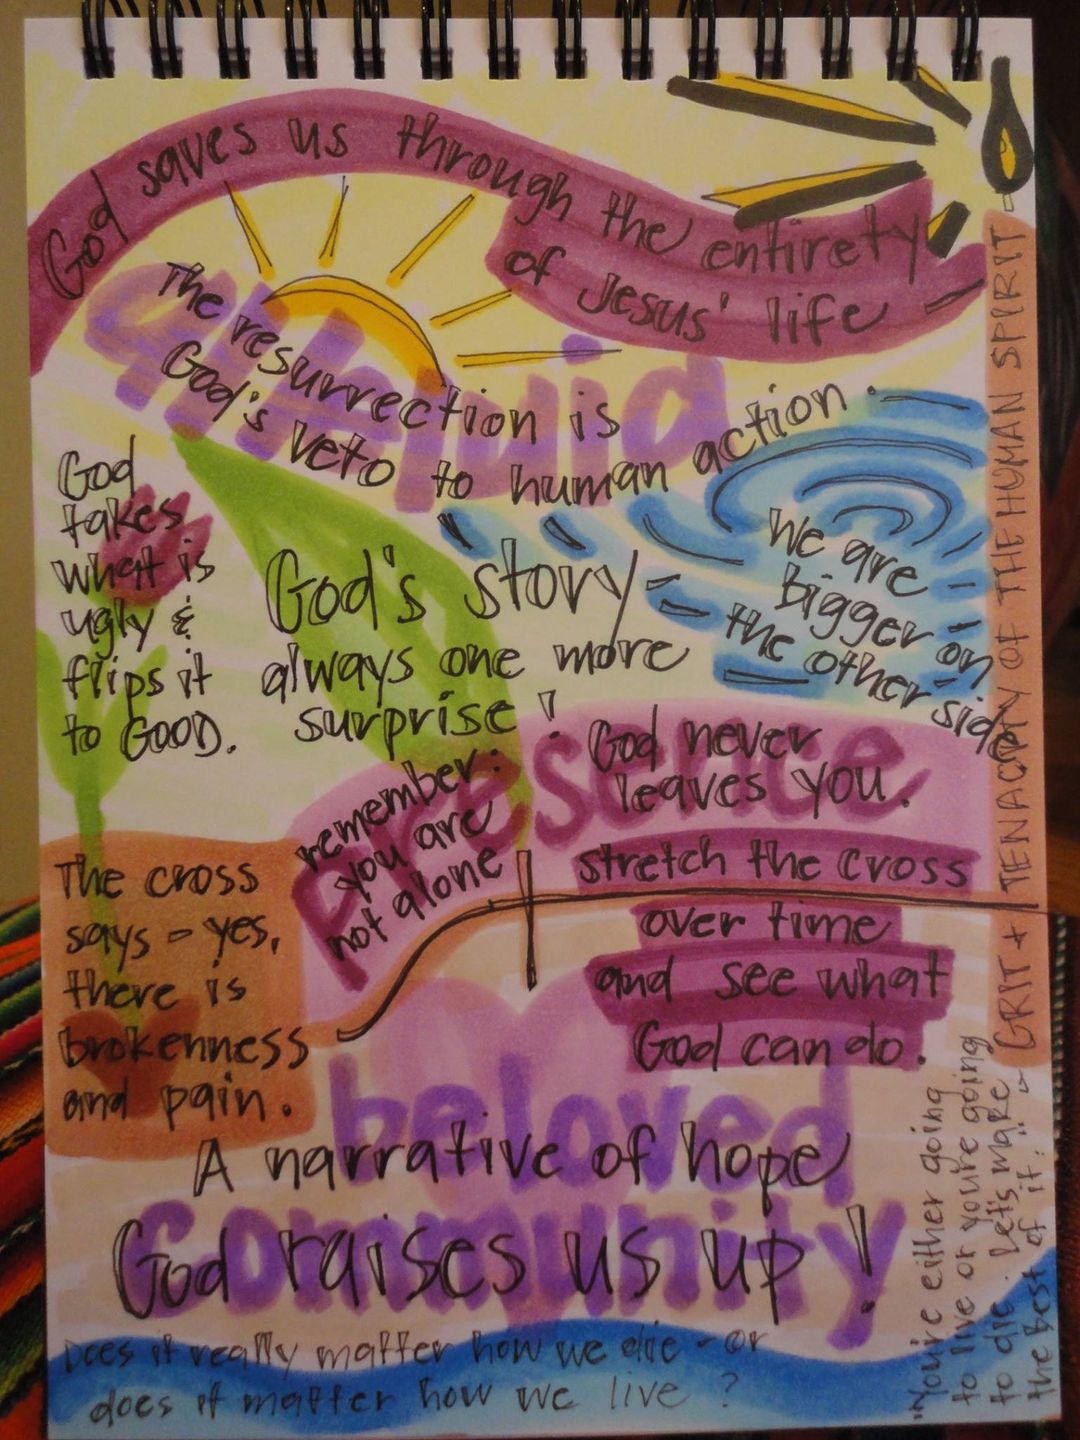 God saves us through the entirety
of Jesus' life -
alleluia
The resurrection is
God's veto to human action.
God
takes
what is
ugly &
flips it
to GOOD.
God's story -
always one more
surprise!
We are
Bigger on
the other side
presence
remember:
you are
not alone
God never
leaves you.
stretch the cross
over time
and see what
God can do.
The cross
says - yes,
there is
brokenness
and pain.
beloved
community
A narrative of hope
God raises us up!
Does it really matter how we die - or
does it matter how we live?
GRIT + TENACITY OF THE HUMAN SPIRIT -
"You're either going
to live or you're going
to die. Let's make
the best of it."